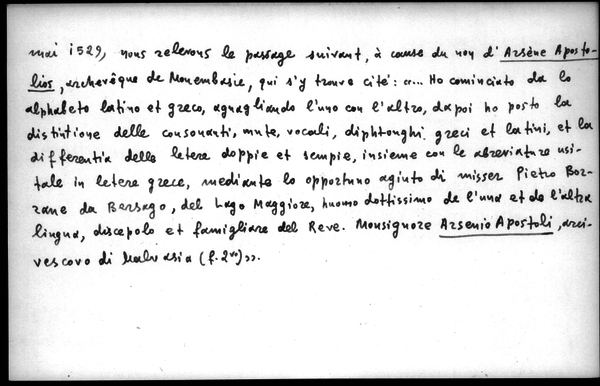 mai 1529, nous relevons le passage suivant, à cause du nom d'Arsène Aposto-
lios, archevêque de Monembasie, qui s'y trouve cité: «... Ho cominciato da lo
alphabeto latino et greco, aguagliando l'uno con l'altro, dapoi ho posto la
distintione delle consonanti, mute, vocali, diphtonghi greci et latini, et la
differentia delle letere doppie et sempie, insieme con le abreviature usi-
tate in letere grece, mediante lo opportuno agiuto di misser Pietro Boz-
zane da Bersago, del Lago Maggiore, huomo dottissimo de l'una et de l'altra
lingua, discepolo et famigliare del Reve. Monsignore Arsenio Apostoli, arci-
vescovo di Malvasia (f. 2vo)».